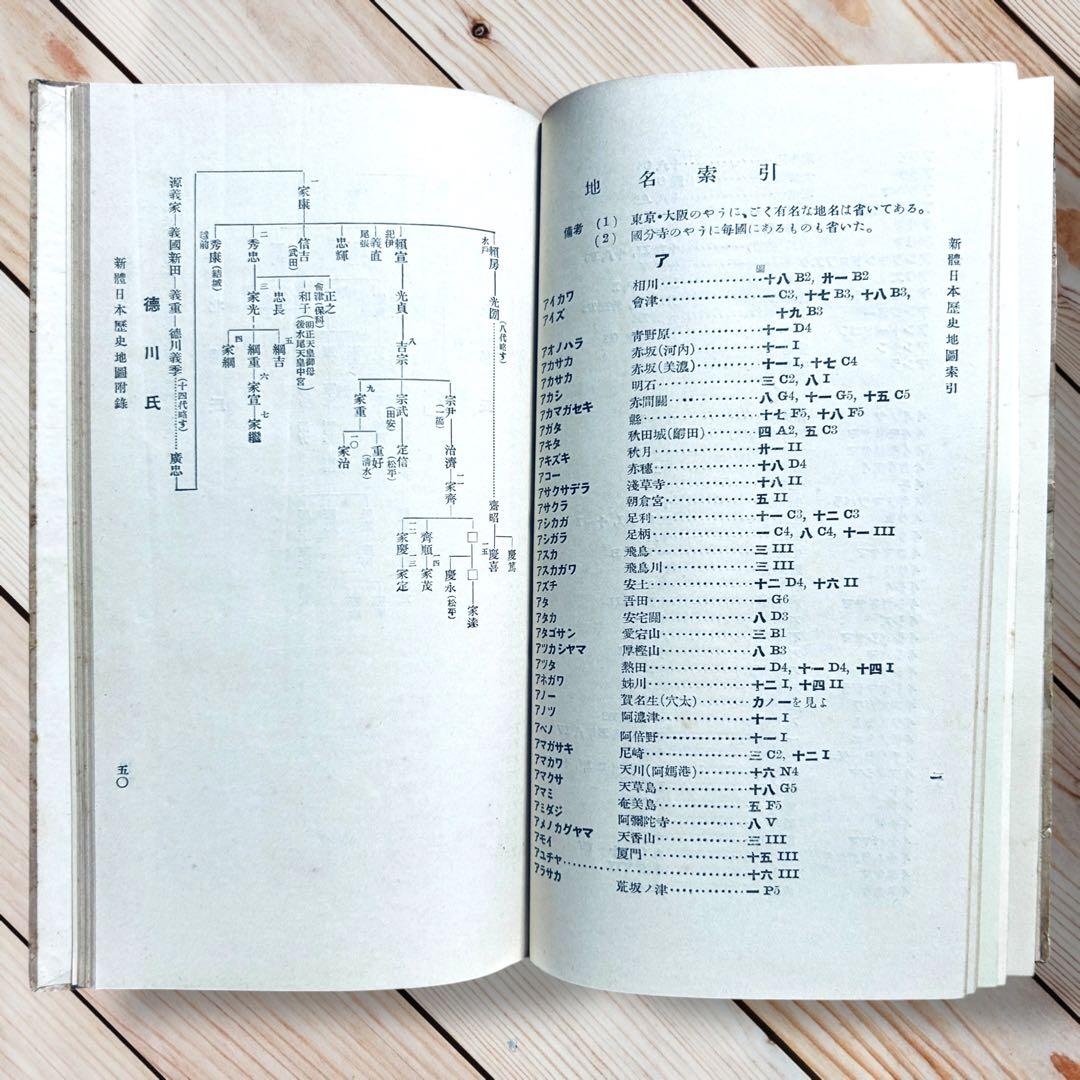 新體日本歷史地圖附錄
德川氏
源義家―義國新田―義重―德川義季(十四代略す)……廣忠
一 家康
越前 秀康(結城)
二 秀忠
信吉(武田)
忠輝
尾張 義直
紀伊 賴宣
水戶 賴房
三 家光
忠長
和子(明正天皇御母 後水尾天皇中宮)
會津 正之(保科)
光貞
光圀
(八代略す)
四 家綱
綱重
五 綱吉
八 吉宗
六 家宣
七 家繼
九 家重
宗武(田安)
宗尹(一橋)
一〇 家治
重好(淸水)
定信(松平)
治濟
一一 家齊
齋昭
一二 家慶
齊順
□
一五 慶喜
慶篤
一三 家定
一四 家茂
慶永(松平)
□
家達
五〇
地名索引
備考 (1) 東京・大阪のやうに、ごく有名な地名は省いてある。
(2) 國分寺のやうに每國にあるものも省いた。
ア
圖
アイカワ 相川……十八 B2, 廿一 B2
アイズ 會津……一 C3, 十七 B3, 十八 B3,
十九 B3
アオノハラ 靑野原……十一 D4
アカサカ 赤坂(河內)……十一 I
アカサカ 赤坂(美濃)……十一 I, 十七 C4
アカシ 明石……三 C2, 八 I
アカマガセキ 赤間關……八 G4, 十一 G5, 十五 C5
アガタ 縣……十七 F5, 十八 F5
アキタ 秋田城(齶田)……四 A2, 五 C3
アキズキ 秋月……廿一 II
アコー 赤穗……十八 D4
アサクサデラ 淺草寺……十八 II
アサクラ 朝倉宮……五 II
アシカガ 足利……十一 C3, 十二 C3
アシガラ 足柄……一 C4, 八 C4, 十一 III
アスカ 飛鳥……三 III
アスカガワ 飛鳥川……三 III
アズチ 安土……十二 D4, 十六 II
アタ 吾田……一 G6
アタカ 安宅關……八 D3
アタゴサン 愛宕山……三 B1
アツカシヤマ 厚樫山……八 B3
アツタ 熱田……一 D4, 十一 D4, 十四 I
アネガワ 姉川……十二 I, 十四 II
アノー 賀名生(穴太)……カノーを見よ
アノツ 阿濃津……十一 I
アベノ 阿倍野……十一 I
アマガサキ 尼崎……三 C2, 十二 I
アマカワ 天川(阿媽港)……十六 N4
アマクサ 天草島……十八 G5
アマミ 奄美島……五 F5
アミダジ 阿彌陀寺……八 V
アメノカグヤマ 天香山……三 III
アモイ 厦門……十五 III
アユチヤ……十六 III
アラサカ 荒坂ノ津……一 P5
新體日本歷史地圖索引
一